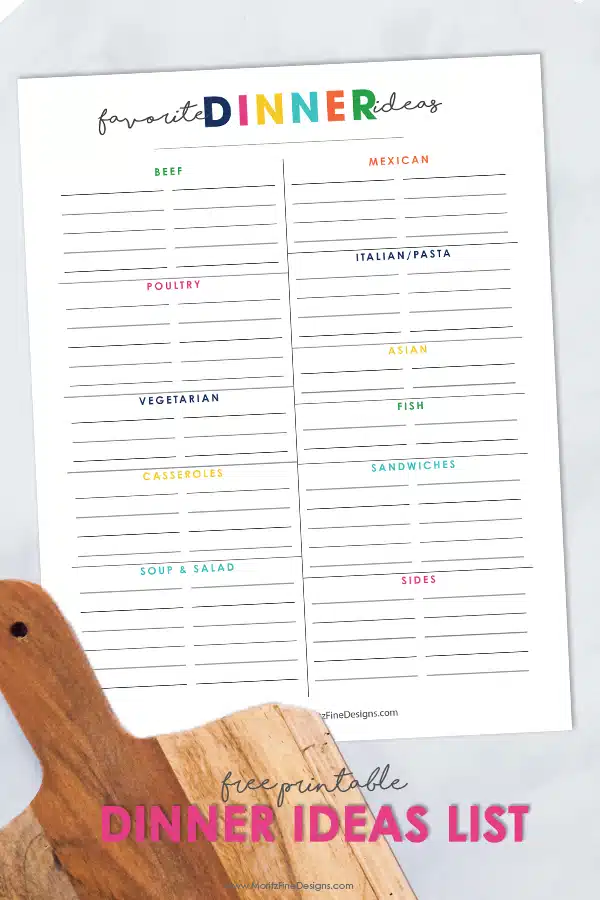 favorite DINNER ideas
BEEF
POULTRY
VEGETARIAN
CASSEROLES
SOUP & SALAD
MEXICAN
ITALIAN/PASTA
ASIAN
FISH
SANDWICHES
SIDES
tzFineDesigns.com
free printable
DINNER IDEAS LIST
www.MoritzFineDesigns.com